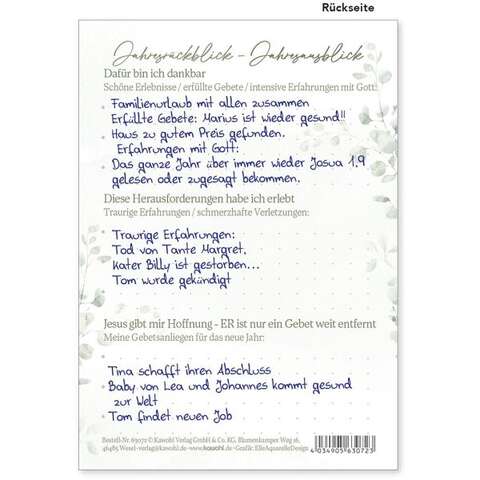 Rückseite
Jahresrückblick - Jahresausblick
Dafür bin ich dankbar
Schöne Erlebnisse / erfüllte Gebete / intensive Erfahrungen mit Gott:
Familienurlaub mit allen zusammen
Erfüllte Gebete: Marius ist wieder gesund!!
Haus zu gutem Preis gefunden.
Erfahrungen mit Gott:
Das ganze Jahr über immer wieder Josua 1,9
gelesen oder zugesagt bekommen.
Diese Herausforderungen habe ich erlebt
Traurige Erfahrungen / schmerzhafte Verletzungen:
Traurige Erfahrungen:
Tod von Tante Margret,
Kater Billy ist gestorben...
Tom wurde gekündigt
Jesus gibt mir Hoffnung - ER ist nur ein Gebet weit entfernt
Meine Gebetsanliegen für das neue Jahr:
Tina schafft ihren Abschluss
Baby von Lea und Johannes kommt gesund
zur Welt
Tom findet neuen Job
Bestell-Nr. 63072 © Kawohl Verlag GmbH & Co. KG, Blumenkamper Weg 16,
46485 Wesel · verlag@kawohl.de · www.kawohl.de · Grafik: ElleAquarelleDesign
4 034905 630723